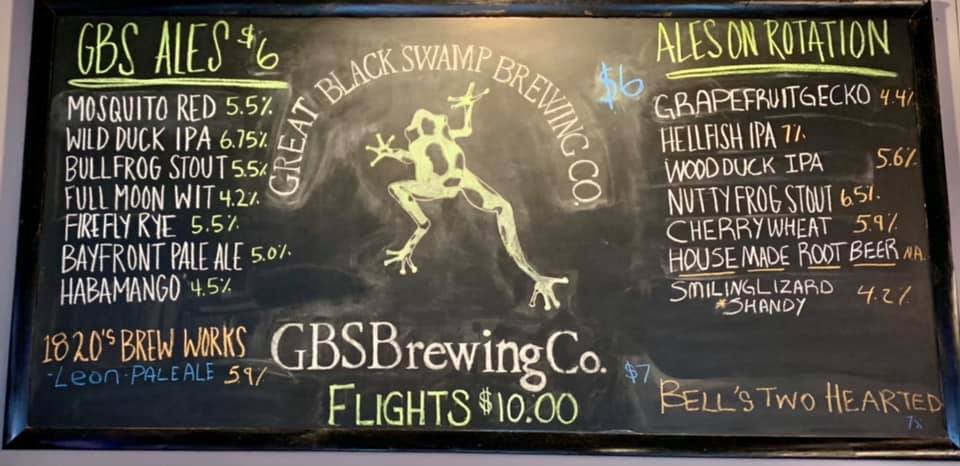 GBS ALES $6
MOSQUITO RED 5.5%
WILD DUCK IPA 6.75%
BULLFROG STOUT 5.5%
FULL MOON WIT 4.2%
FIREFLY RYE 5.5%
BAYFRONT PALE ALE 5.0%
HABAMANGO 4.5%
1820'S BREW WORKS
-LEON-PALE ALE 5.9%
GREAT BLACK SWAMP BREWING CO.
GBSBrewingCo.
FLIGHTS $10.00
ALES ON ROTATION
$6
GRAPEFRUIT GECKO 4.4%
HELLFISH IPA 7%
WOOD DUCK IPA 5.6%
NUTTY FROG STOUT 6.5%
CHERRY WHEAT 5.9%
HOUSE MADE ROOT BEER NA
SMILING LIZARD 4.2%
*SHANDY
$7
BELL'S TWO HEARTED
7%